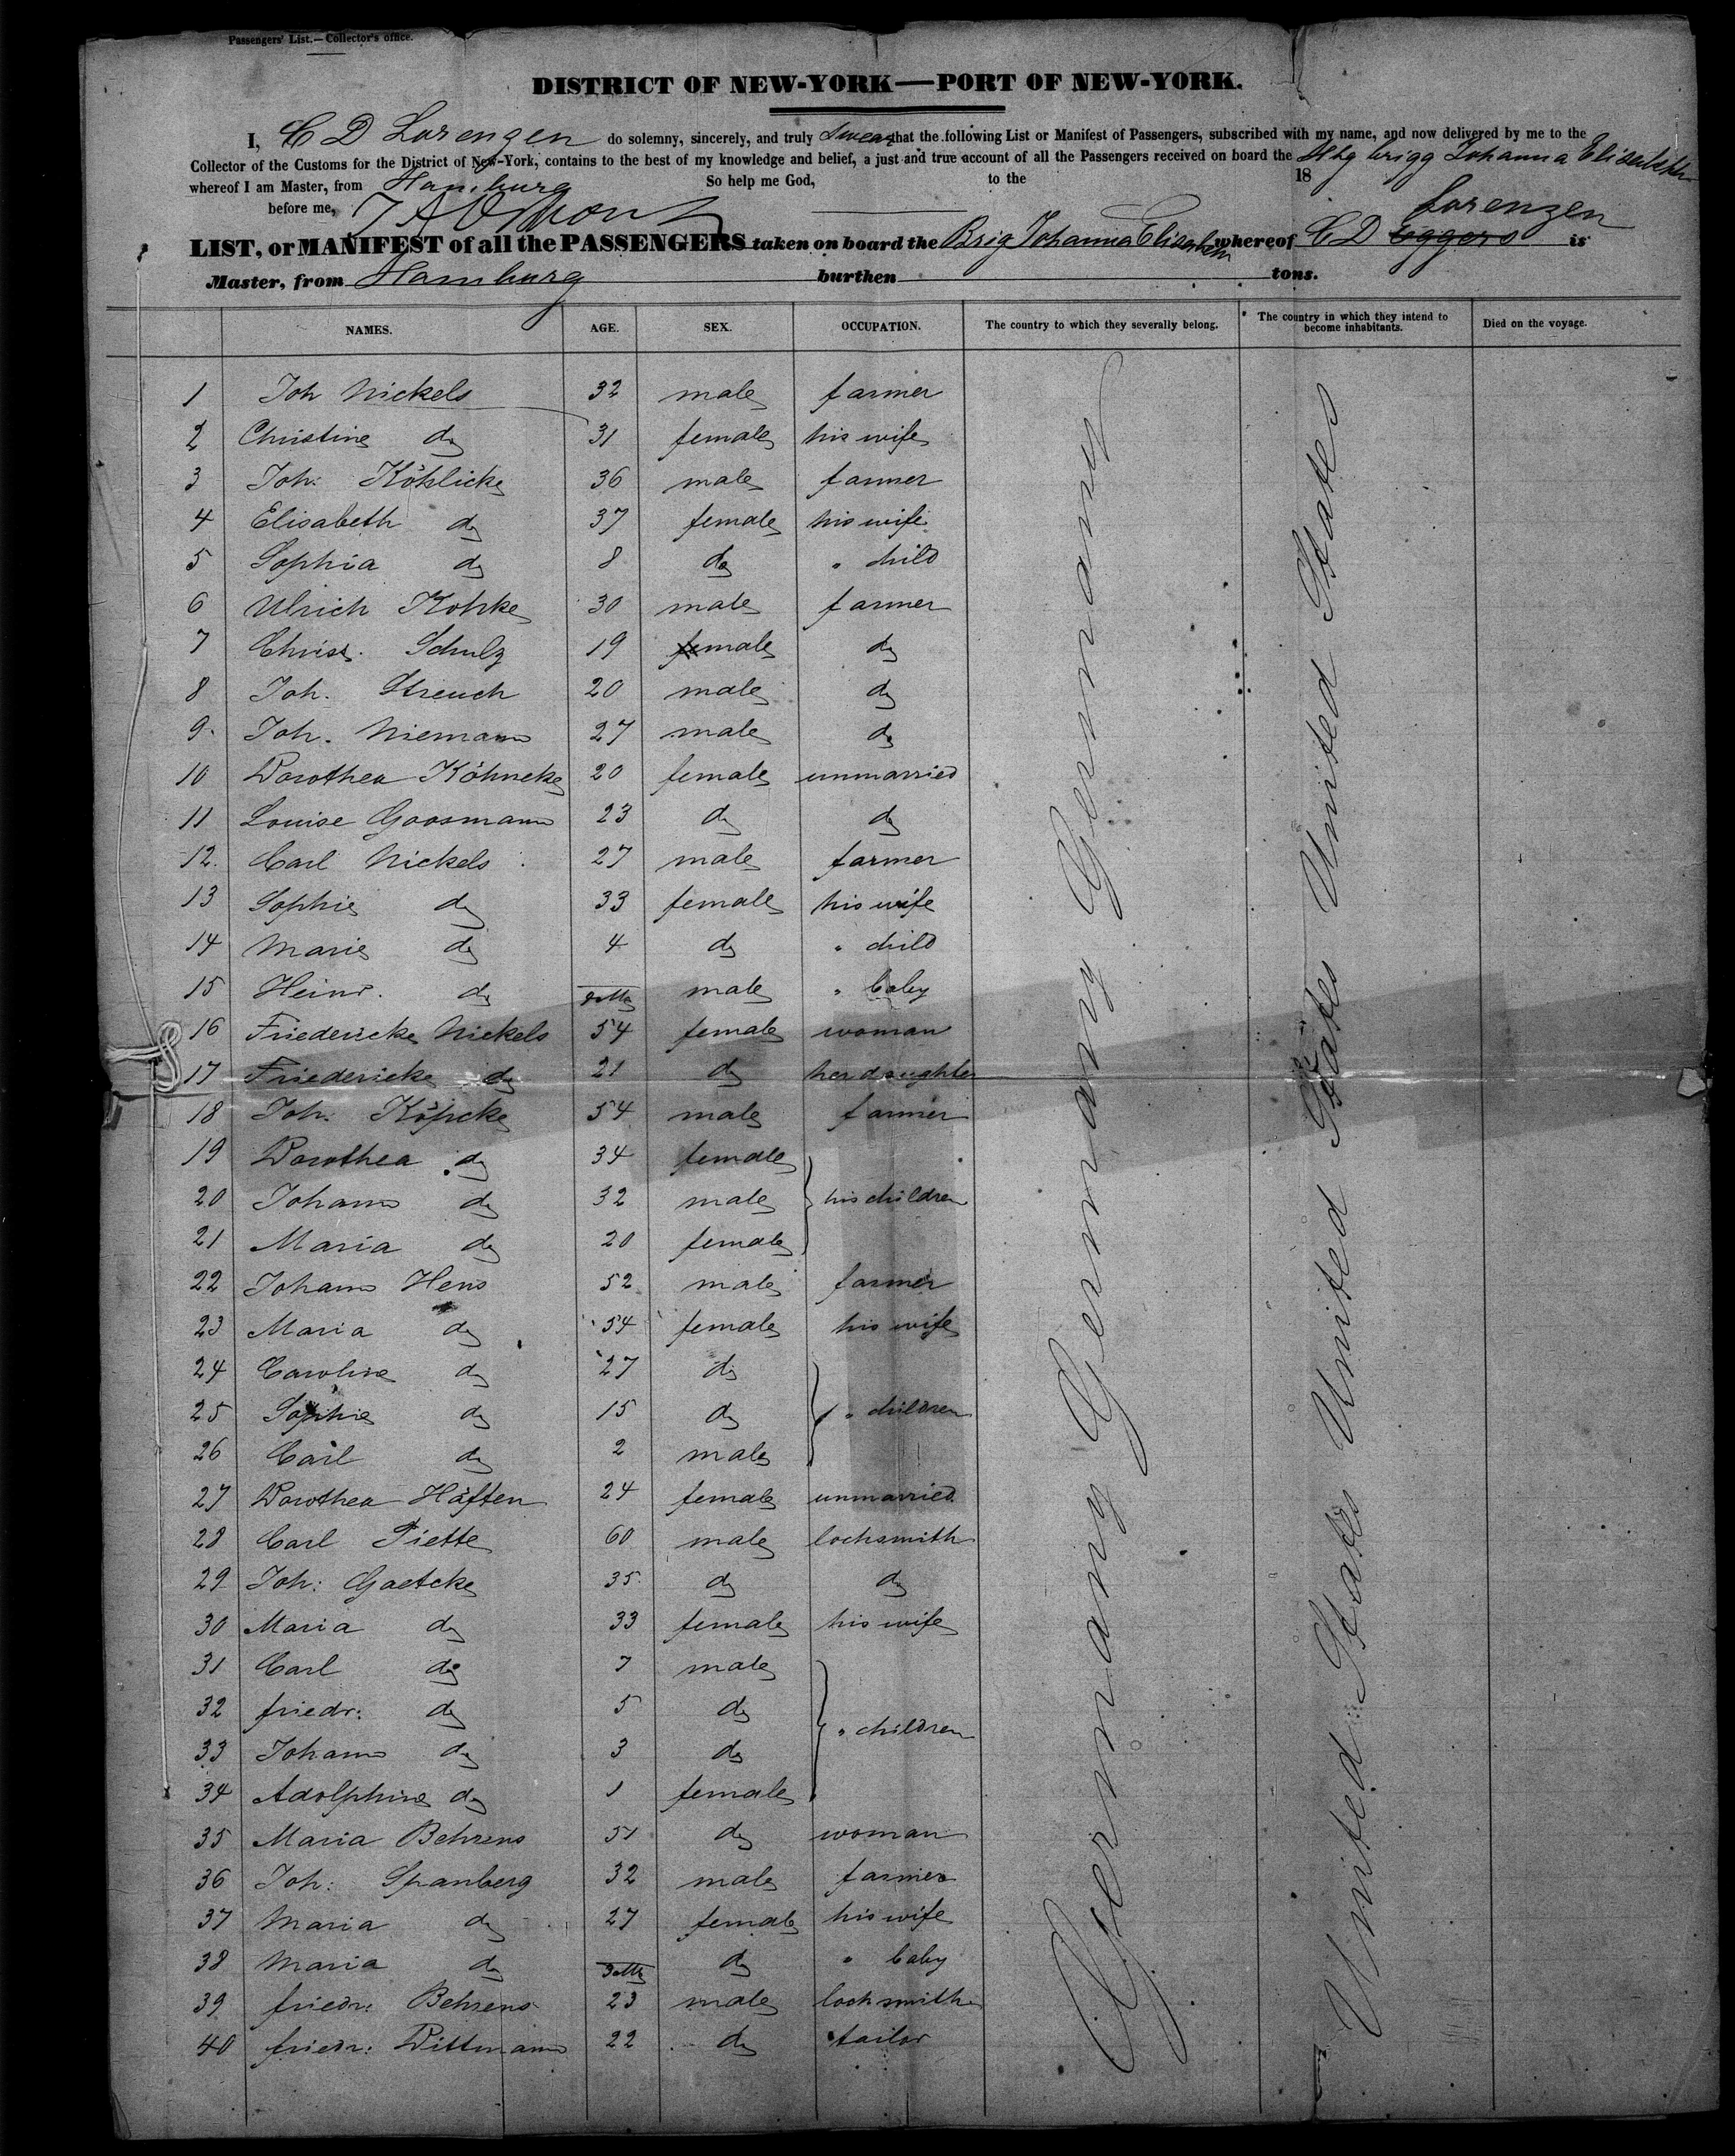 Passengers' List.—Collector's office.
DISTRICT OF NEW-YORK—PORT OF NEW-YORK.
I, C D Lorenzen do solemny, sincerely, and truly swear that the following List or Manifest of Passengers, subscribed with my name, and now delivered by me to the
Collector of the Customs for the District of New-York, contains to the best of my knowledge and belief, a just and true account of all the Passengers received on board the Hbg brigg Johanna Elisabeth
whereof I am Master, from Hamburg So help me God, to the 18
before me,
LIST, or MANIFEST of all the PASSENGERS taken on board the Brig Johanna Elisabeth whereof C D Eggers Lorenzen is
Master, from Hamburg burthen tons.
NAMES. AGE. SEX. OCCUPATION. The country to which they severally belong. The country in which they intend to become inhabitants. Died on the voyage.
1 Joh Nickels 32 male farmer
2 Christine do 31 female his wife
3 Joh: Köhlicke 36 male farmer
4 Elisabeth do 37 female his wife
5 Sophia do 8 do " child
6 Ulrich Kohrke 30 male farmer
7 Christ. Schulz 19 male do
8 Joh. Streuch 20 male do
9. Joh. Niemann 27 male do
10 Dorothea Köhncke 20 female unmarried
11 Louise Goosmann 23 do do
12. Carl Nickels 27 male farmer
13 Sophie do 33 female his wife
14 Marie do 4 do " child
15 Heinr. do male " baby
16 Friedericke Nickels 54 female woman
17 Friedericke do 21 do her daughter
18 Joh: Köpcke 54 male farmer
19 Dorothea do 34 female
20 Johann do 32 male his children
21 Maria do 20 female
22 Johann Hens 52 male farmer
23 Maria do 54 female his wife
24 Caroline do 27 do
25 Sophie do 15 do " children
26 Carl do 2 male
27 Dorothea Häften 24 female unmarried
28 Carl Piette 60 male locksmith
29 Joh: Gaetcke 35 do do
30 Maria do 33 female his wife
31 Carl do 7 male
32 friedr: do 5 do
" children
33 Johann do 3 do
34 Adolphine do 1 female
35 Maria Behrens 51 do woman
36 Joh: Spanberg 32 male farmer
37 Maria do 27 female his wife
38 Maria do do " baby
39 friedr: Behrens 23 male locksmith
40 friedr: Dittmann 22 do tailor
Germany Germany Germany Germany
United States United States United States